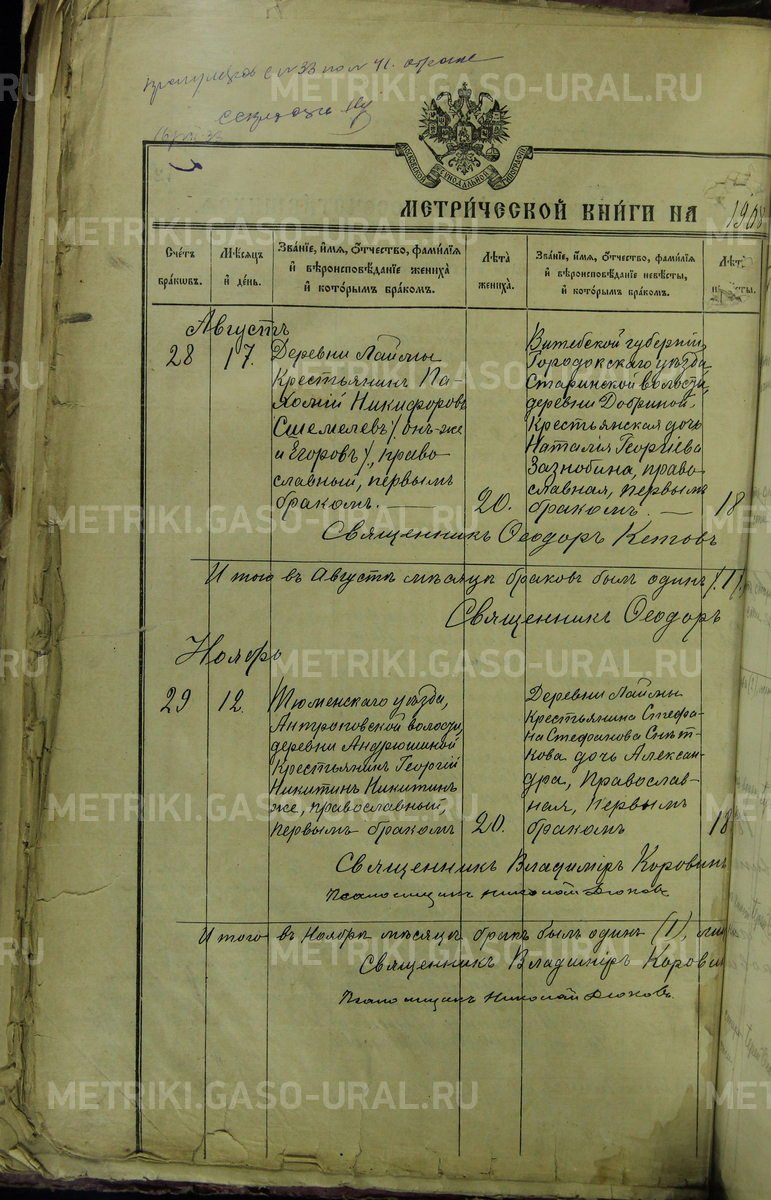 МОСКОВСКОЙ СѴНОДАЛЬНОЙ ТИПОГРАФІИ
МЕТРИ́ЧЕСКОЙ КНИ́ГИ НА 1908
Сче́тъ бра́кωвъ.
Мѣ́сяцъ и҆ де́нь.
Зва́нїе, и҆́мя, ѻ҆́тчество, фами́лїя и҆ вѣроисповѣ́данїе жениха̀ и҆ кото́рымъ бра́комъ.
Лѣ́та жениха̀.
Зва́нїе, и҆́мя, ѻ҆́тчество, фами́лїя и҆ вѣроисповѣ́данїе невѣ́сты, и҆ кото́рымъ бра́комъ.
Лѣ́та
Августъ
28
17.
Деревни Лаймы
Крестьянинъ Па-
хомій Никифоровъ
Сшемелевъ /онъ-же
и Егоровъ/, право-
славный, первымъ
бракомъ.
20.
Витебской губерніи,
Городокскаго уѣзда,
Старинской волости,
деревни Добриной.
Крестьянская дочь
Наталія Георгіева
Зазнобина, право-
славная, первымъ
бракомъ.
18
Священникъ Ѳеодоръ Кетовъ
Итого въ Августѣ мѣсяцѣ браковъ былъ одинъ (1)
Священникъ Ѳеодоръ
Ноябрь
29
12.
Тюменскаго уѣзда,
Антроповской волости,
деревни Андрюшиной
Крестьянинъ Георгій
Никитинъ Никитинъ
же, православный,
первымъ бракомъ
20.
Деревни Лаймы
Крестьянина Стефа-
на Стефанова Снѣт-
кова дочь Алексан-
дра, Православ-
ная, Первымъ
бракомъ
18
Священникъ Владиміръ Коровинъ
Псаломщикъ Николай Дюковъ
Итого въ Ноябрѣ мѣсяцѣ бракъ былъ одинъ (1),
Священникъ Владиміръ Корови
Псаломщикъ Николай Дюковъ.
METRIKI.GASO-URAL.RU